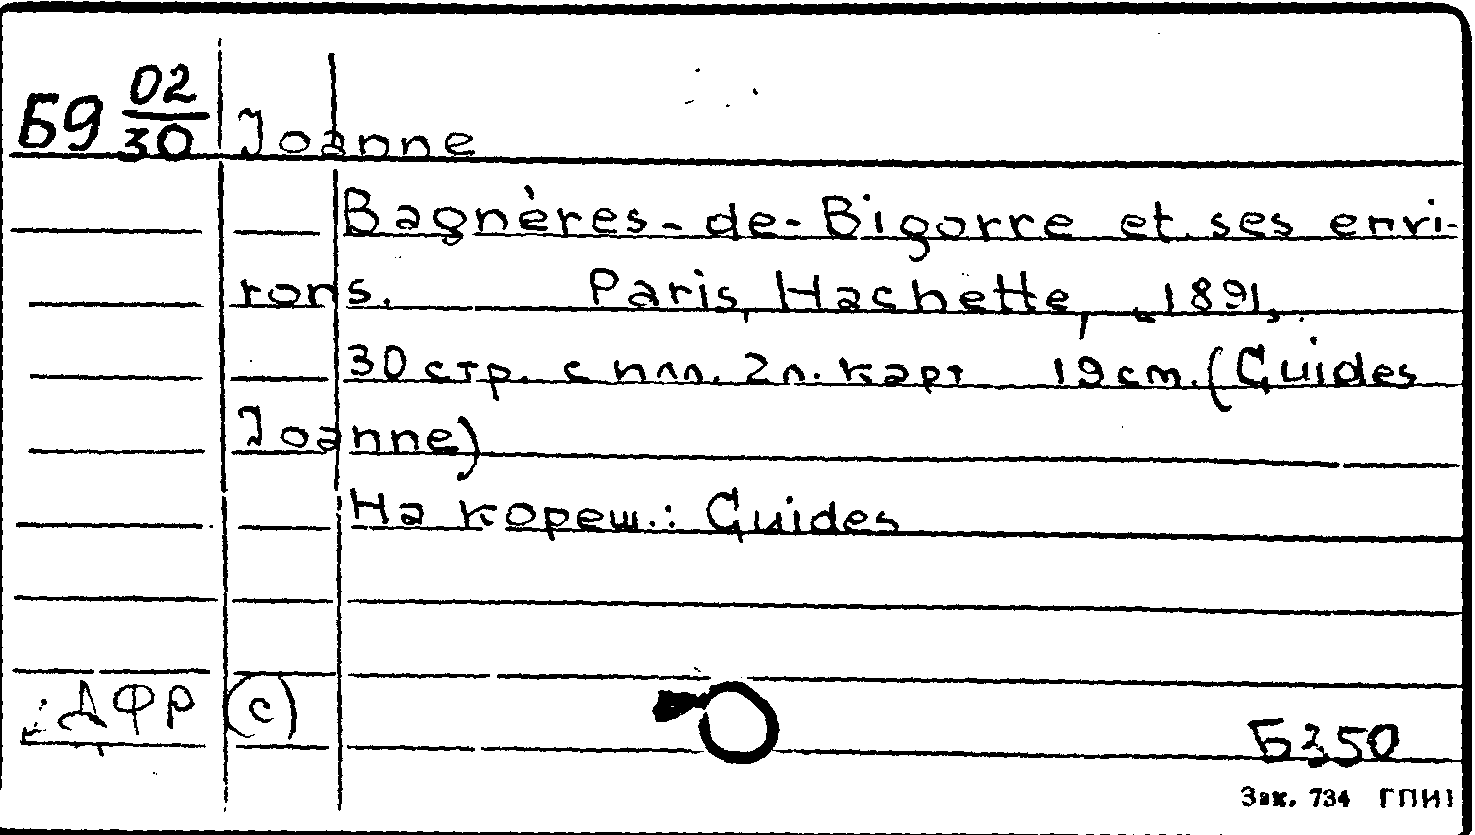 Б9 02/30 Joanne
Bagnères-de-Bigorre et ses envi-
rons. Paris, Hachette, 1891,
30 стр. с илл. 2 л. карт 19 см. (Guides
Joanne)
На кореш.: Guides
ДФР (с)
Б350
Зак. 734 ГПИ1